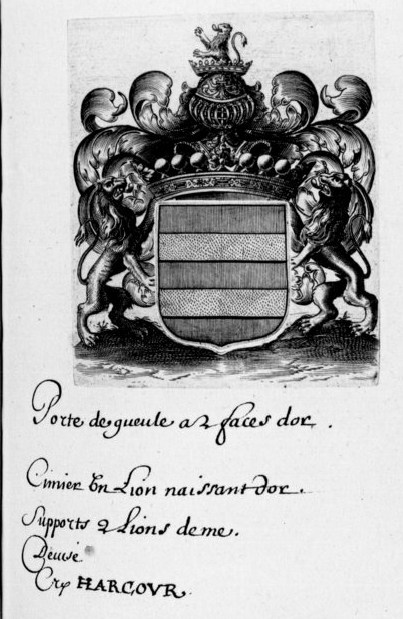 Porte de gueule a 2 faces dor.
Cimier Un Lion naissant dor.
Supports 2 Lions de me.
Devise
Cry HARCOVR.